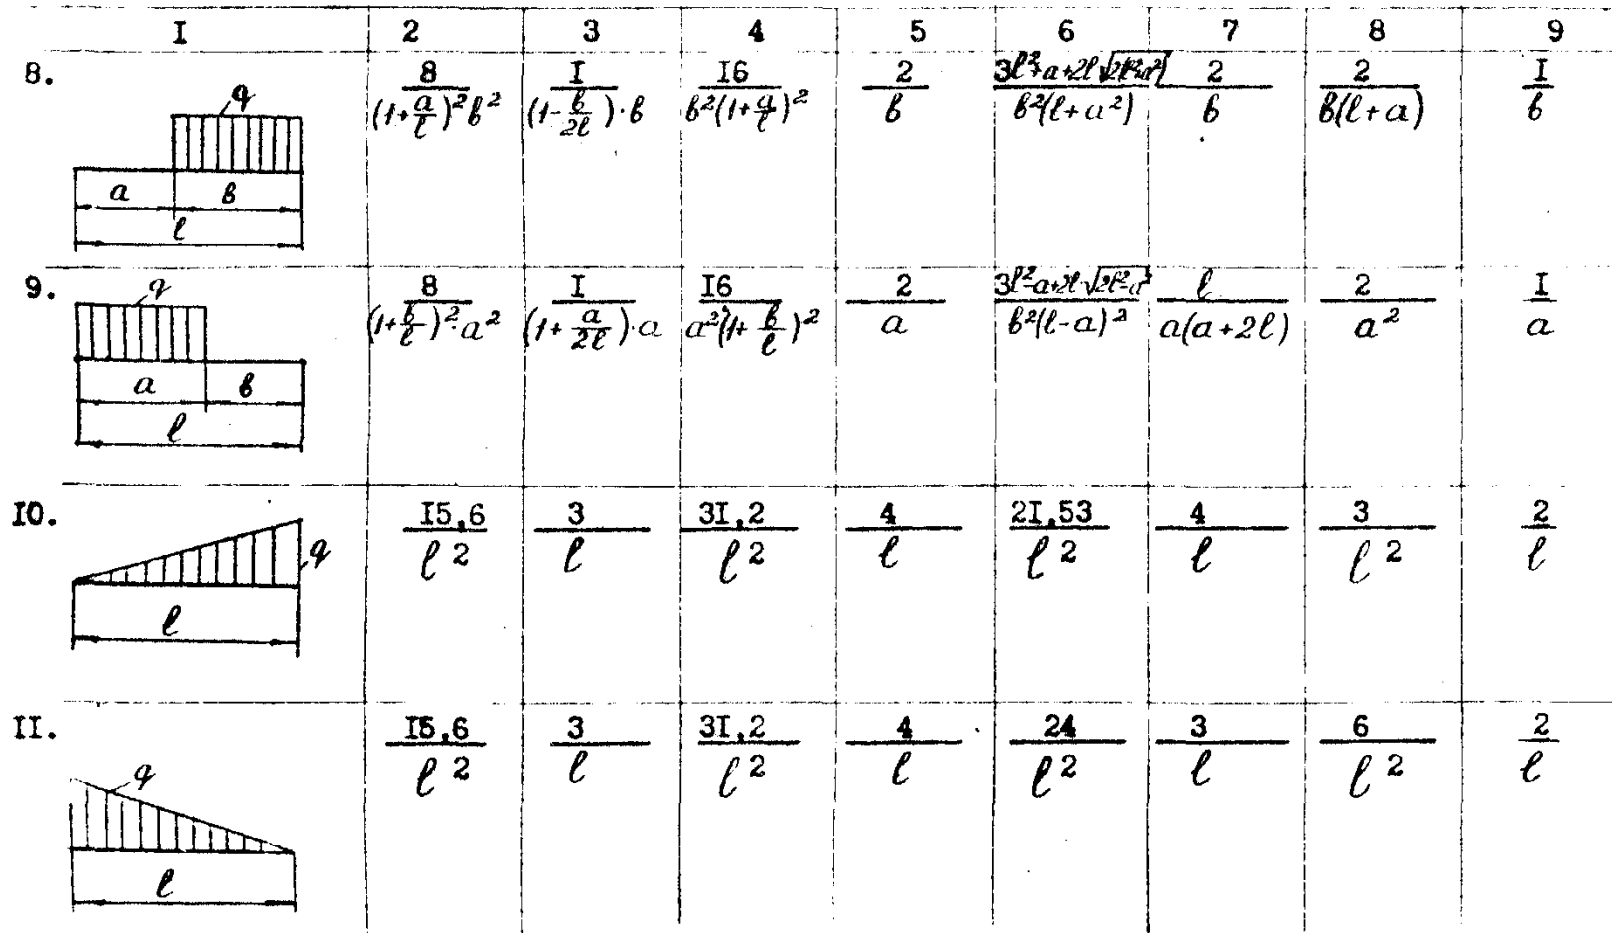 I 2 3 4 5 6 7 8 9
8. 8/((1+a/ℓ)²в²) I/((1-в/2ℓ)·в) I6/(в²(1+a/ℓ)²) 2/в 3ℓ²+a+2ℓ√(2ℓ²-a²)/(в²(ℓ+a²)) 2/в 2/(в(ℓ+a)) I/в
q
a в
ℓ
9. 8/((1+в/ℓ)²·a²) I/((1+a/2ℓ)·a) I6/(a²(1+в/ℓ)²) 2/a 3ℓ²-a+2ℓ√(2ℓ²-a²)/(в²(ℓ-a)²) ℓ/(a(a+2ℓ)) 2/a² I/a
q
a в
ℓ
I0. I5,6/ℓ² 3/ℓ 3I,2/ℓ² 4/ℓ 2I,53/ℓ² 4/ℓ 3/ℓ² 2/ℓ
q
ℓ
II. I5,6/ℓ² 3/ℓ 3I,2/ℓ² 4/ℓ 24/ℓ² 3/ℓ 6/ℓ² 2/ℓ
q
ℓ